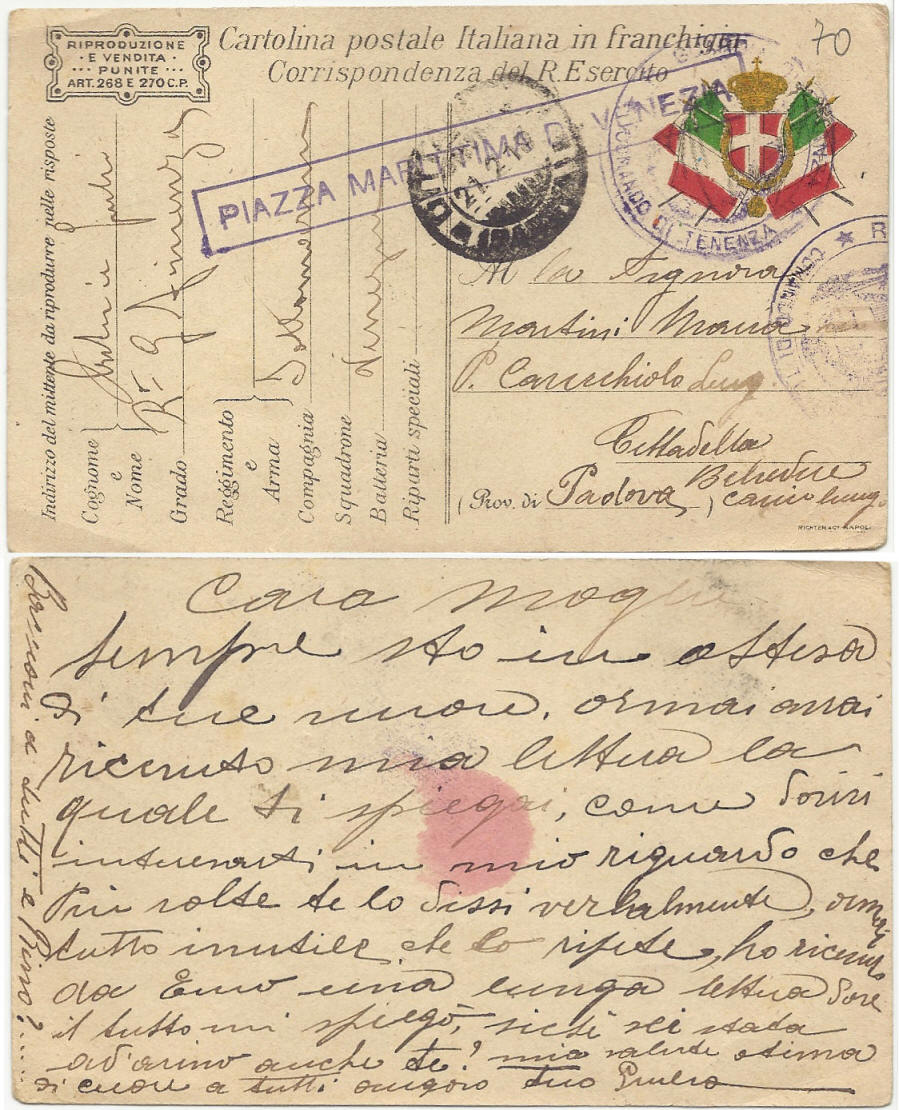 RIPRODUZIONE
E VENDITA
PUNITE
ART. 268 E 270 C.P.
Cartolina postale Italiana in franchigia
Corrispondenza del R. Esercito
70
PIAZZA MARITTIMA DI VENEZIA
21.2.19
COMANDO DI TENENZA
COMANDO DI
Indirizzo del mittente da riprodurre nelle risposte
Cognome e Nome
Grado R.ª G. Finanza
Reggimento e Arma
Compagnia
Squadrone
Batteria
Riparti speciali
Al la Signora
Martini Maria
P. Carecchiolo Lung.
Cittadella
Belvedere
(Prov. di Padova)
RICHTER & Cº NAPOLI
Cara Moglie
Sempre sto in attesa
di tue nuove, ormai avrai
ricevuto mia lettera la
quale ti spiegai, come dovivi
interesarti in mio riguardo che
Piu volte te lo dissi verbalmente, ormai
tutto inutile che lo ripete, ho ricevuto
da una lunga lettera dove
il tutto mi spiegò, sicti sei stata
anche te? mia salute otima
di cuore a tutti auguro tuo
Baccioni a tutti e Primo?